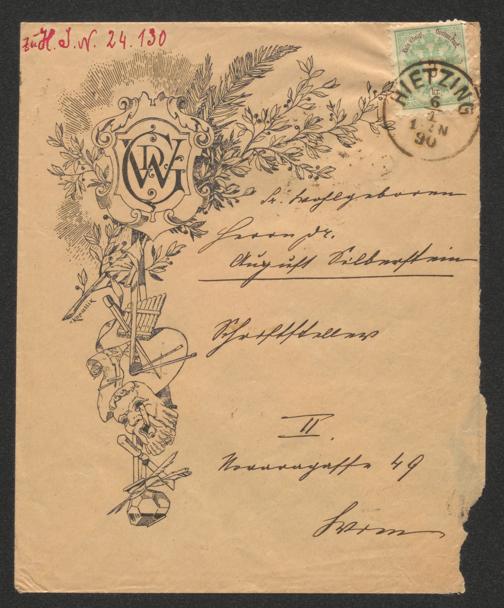 zu H. I. N. 24.130
HIETZING
6
1
90
Sr. Wohlgeboren
Herrn Dr.
August Silberstein
Schriftsteller
II.
Novaragasse 49
Wien